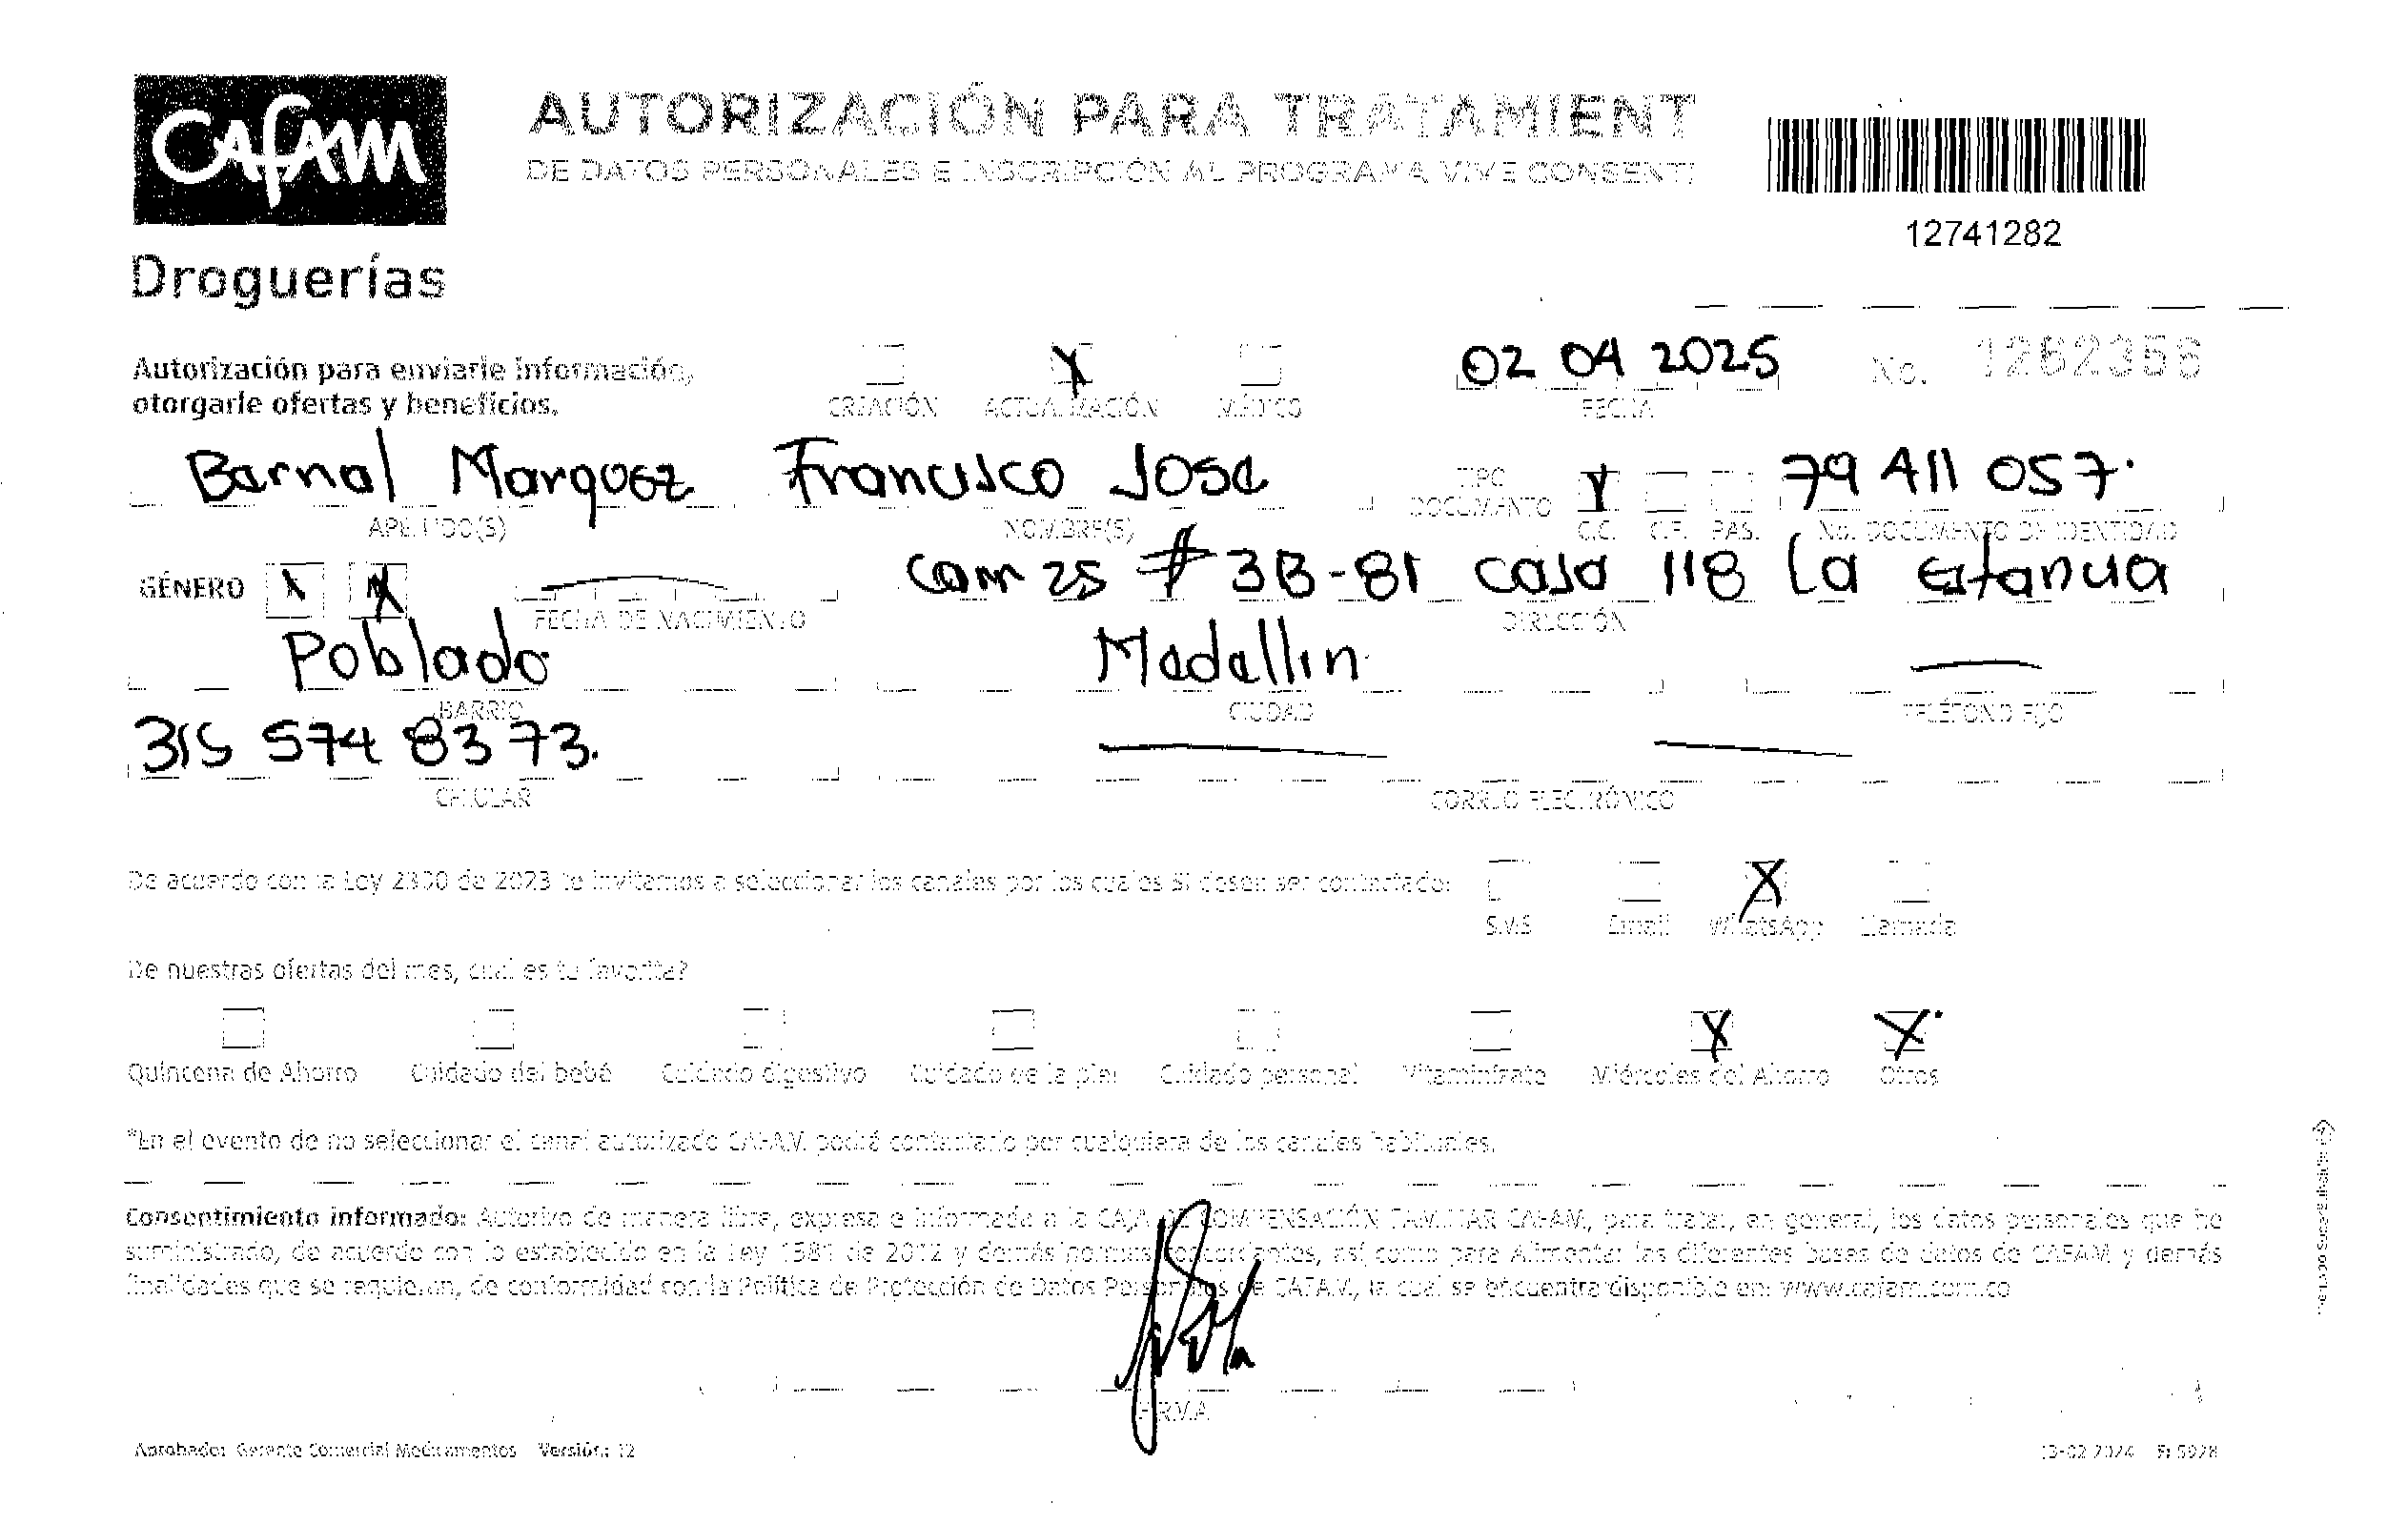 Cafam
Droguerías
AUTORIZACIÓN PARA TRATAMIENT
DE DATOS PERSONALES E INSCRIPCIÓN AL PROGRAMA VIVE CONSENTI
12741282
Autorización para enviarle información,
otorgarle ofertas y beneficios.
CREACIÓN X ACTUALIZACIÓN MÉDICO
02 04 2025 FECHA
No. 1262356
Barnal Marquez APELLIDO(S)
Francisco Jose NOMBRE(S)
TIPO DOCUMENTO X C.C. C.E. PAS.
79 411 057. No. DOCUMENTO DE IDENTIDAD
GÉNERO X X
FECHA DE NACIMIENTO
# 3B-81 casa 118 La Estancia DIRECCIÓN
Poblado BARRIO
Medellin CIUDAD
TELÉFONO FIJO
315 574 8373. CELULAR
CORREO ELECTRÓNICO
De acuerdo con la Ley 2300 de 2023 te invitamos a seleccionar los canales por los cuales SI deseo ser contactado:
SMS Email X WhatsApp Llamada
De nuestras ofertas del mes, cuál es tu favorita?
Quincena de Ahorro Cuidado del bebé Cuidado digestivo Cuidado de la piel Cuidado personal Vitamínizate X Miércoles del Ahorro X Otros
*En el evento de no seleccionar el canal autorizado CAFAM podrá contactarlo por cualquiera de los canales habituales.
Consentimiento informado: Autorizo de manera libre, expresa e informada a la CAJA DE COMPENSACIÓN FAMILIAR CAFAM, para tratar, en general, los datos personales que he
suministrado, de acuerdo con lo establecido en la Ley 1581 de 2012 y demás normas concordantes, así como para Alimentar las diferentes bases de datos de CAFAM y demás
finalidades que se requieran, de conformidad con la Política de Protección de Datos Personales de CAFAM, la cual se encuentra disponible en: www.cafam.com.co
FIRMA
Aprobado: Gerente Comercial Medicamentos Versión: 12
13-02 2024 F: 5928